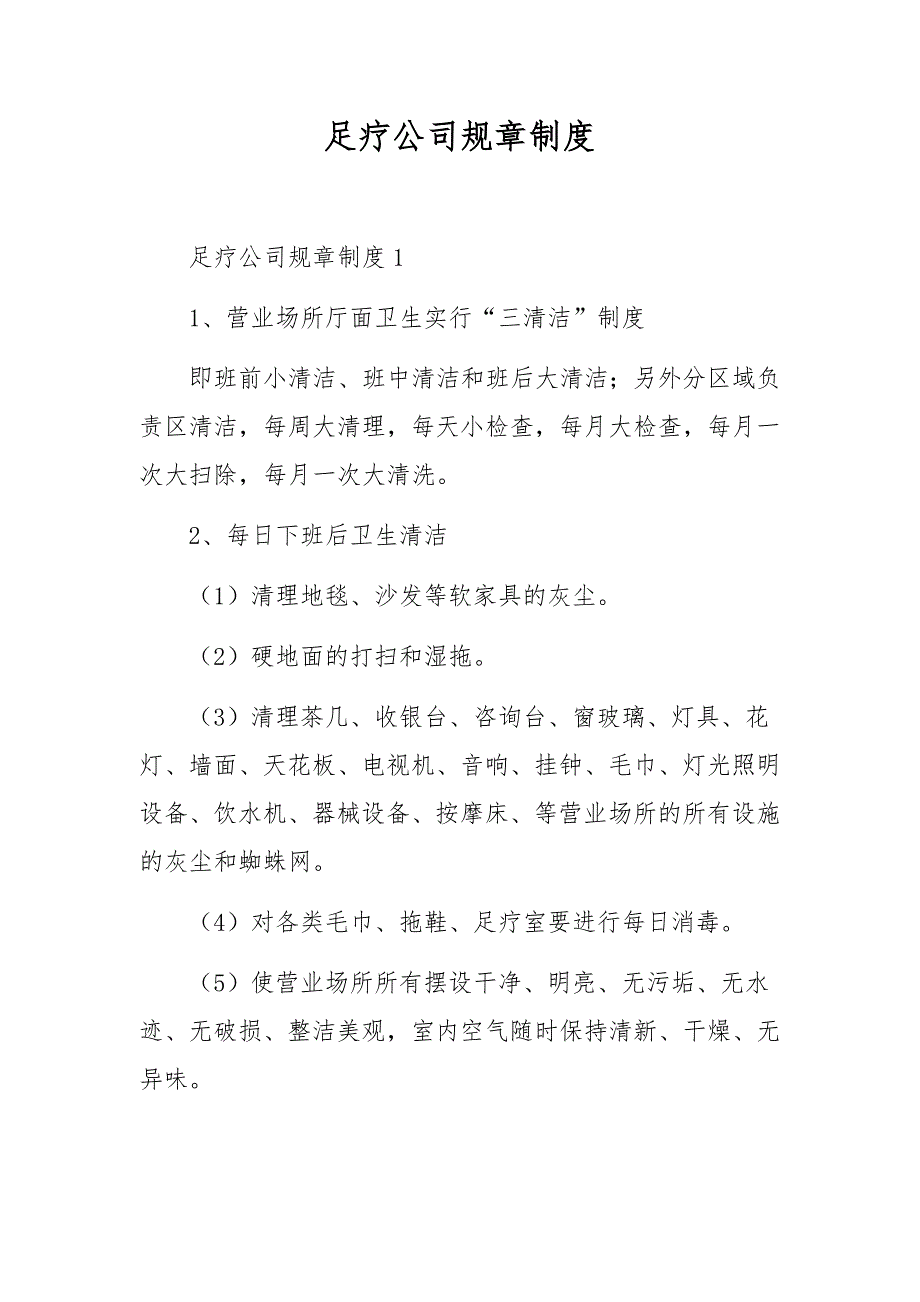 足疗公司规章制度
足疗公司规章制度 1
1、营业场所厅面卫生实行“三清洁”制度
即班前小清洁、班中清洁和班后大清洁；另外分区域负
责区清洁，每周大清理，每天小检查，每月大检查，每月一
次大扫除，每月一次大清洗。
2、每日下班后卫生清洁
（1）清理地毯、沙发等软家具的灰尘。
（2）硬地面的打扫和湿拖。
（3）清理茶几、收银台、咨询台、窗玻璃、灯具、花
灯、墙面、天花板、电视机、音响、挂钟、毛巾、灯光照明
设备、饮水机、器械设备、按摩床、等营业场所的所有设施
的灰尘和蜘蛛网。
（4）对各类毛巾、拖鞋、足疗室要进行每日消毒。
（5）使营业场所所有摆设干净、明亮、无污垢、无水
迹、无破损、整洁美观，室内空气随时保持清新、干燥、无
异味。